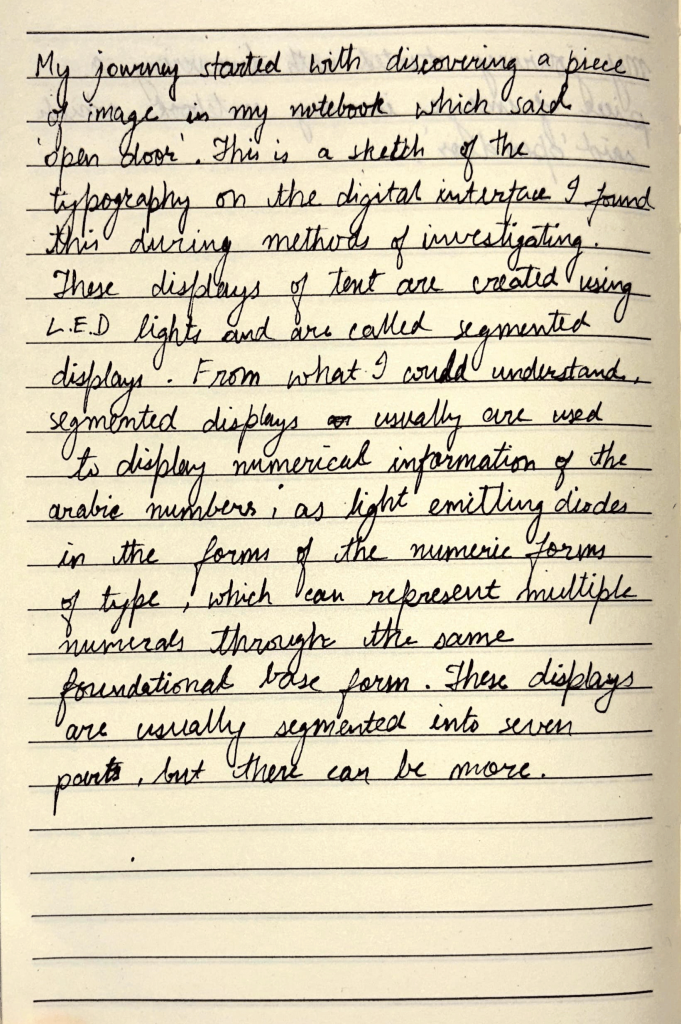 My journey started with discovering a piece
of image in my notebook which said
'open door'. This is a sketch of the
typography on the digital interface I found
this during methods of investigating.
These displays of text are created using
L.E.D lights and are called segmented
displays. From what I could understand,
segmented displays usually are used
to display numerical information of the
arabic numbers, as light emitting diodes
in the forms of the numeric forms
of type, which can represent multiple
numerals through the same
foundational base form. These displays
are usually segmented into seven
parts, but there can be more.